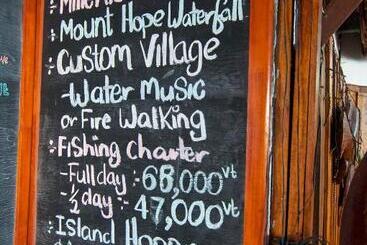 : Mount Hope Waterfall
: Custom Village
-Water Music
or Fire Walking
: Fishing Charter
-Full day : 68,000 vt
-½ day : 47,000 vt
: Island